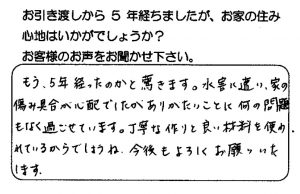 お引き渡しから 5 年経ちましたが、お家の住み
心地はいかがでしょうか？
お客様のお声をお聞かせ下さい。
もう、5年経ったのかと驚きます。水害に遭い、家の
傷み具合が心配でしたがありがたいことに何の問題
もなく過ごせています。丁寧な作りと良い材料を使わ
れているからでしょうね。今後もよろしくお願いいた
します。